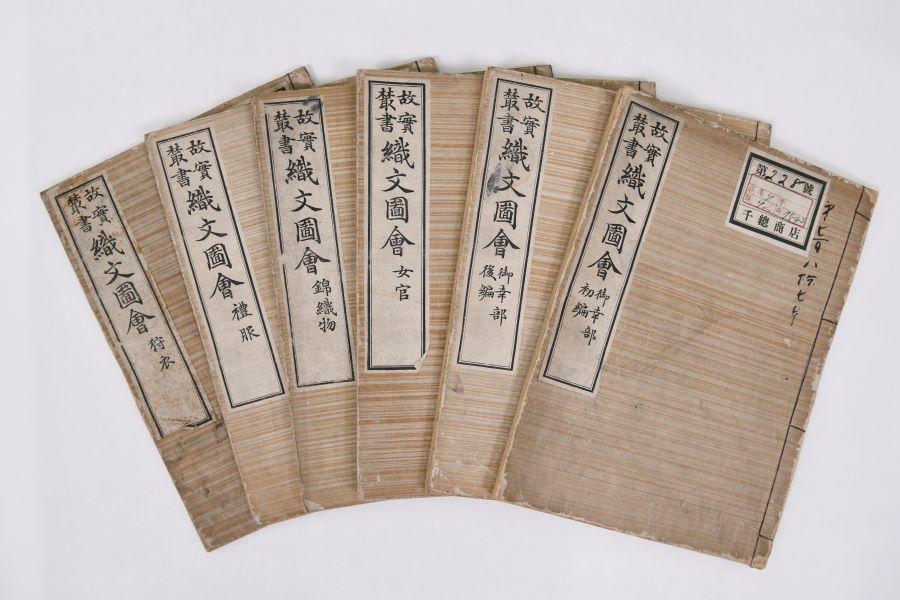 故實
叢書
織文圖會
御幸部
初編
第228號
千總商店
故實
叢書
織文圖會
御幸部
後編
故實
叢書
織文圖會
女官
故實
叢書
織文圖會
錦織物
故實
叢書
織文圖會
禮服
故實
叢書
織文圖會
狩衣